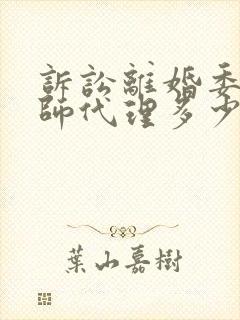 訴訟離婚委
師代理多少
葉山嘉樹